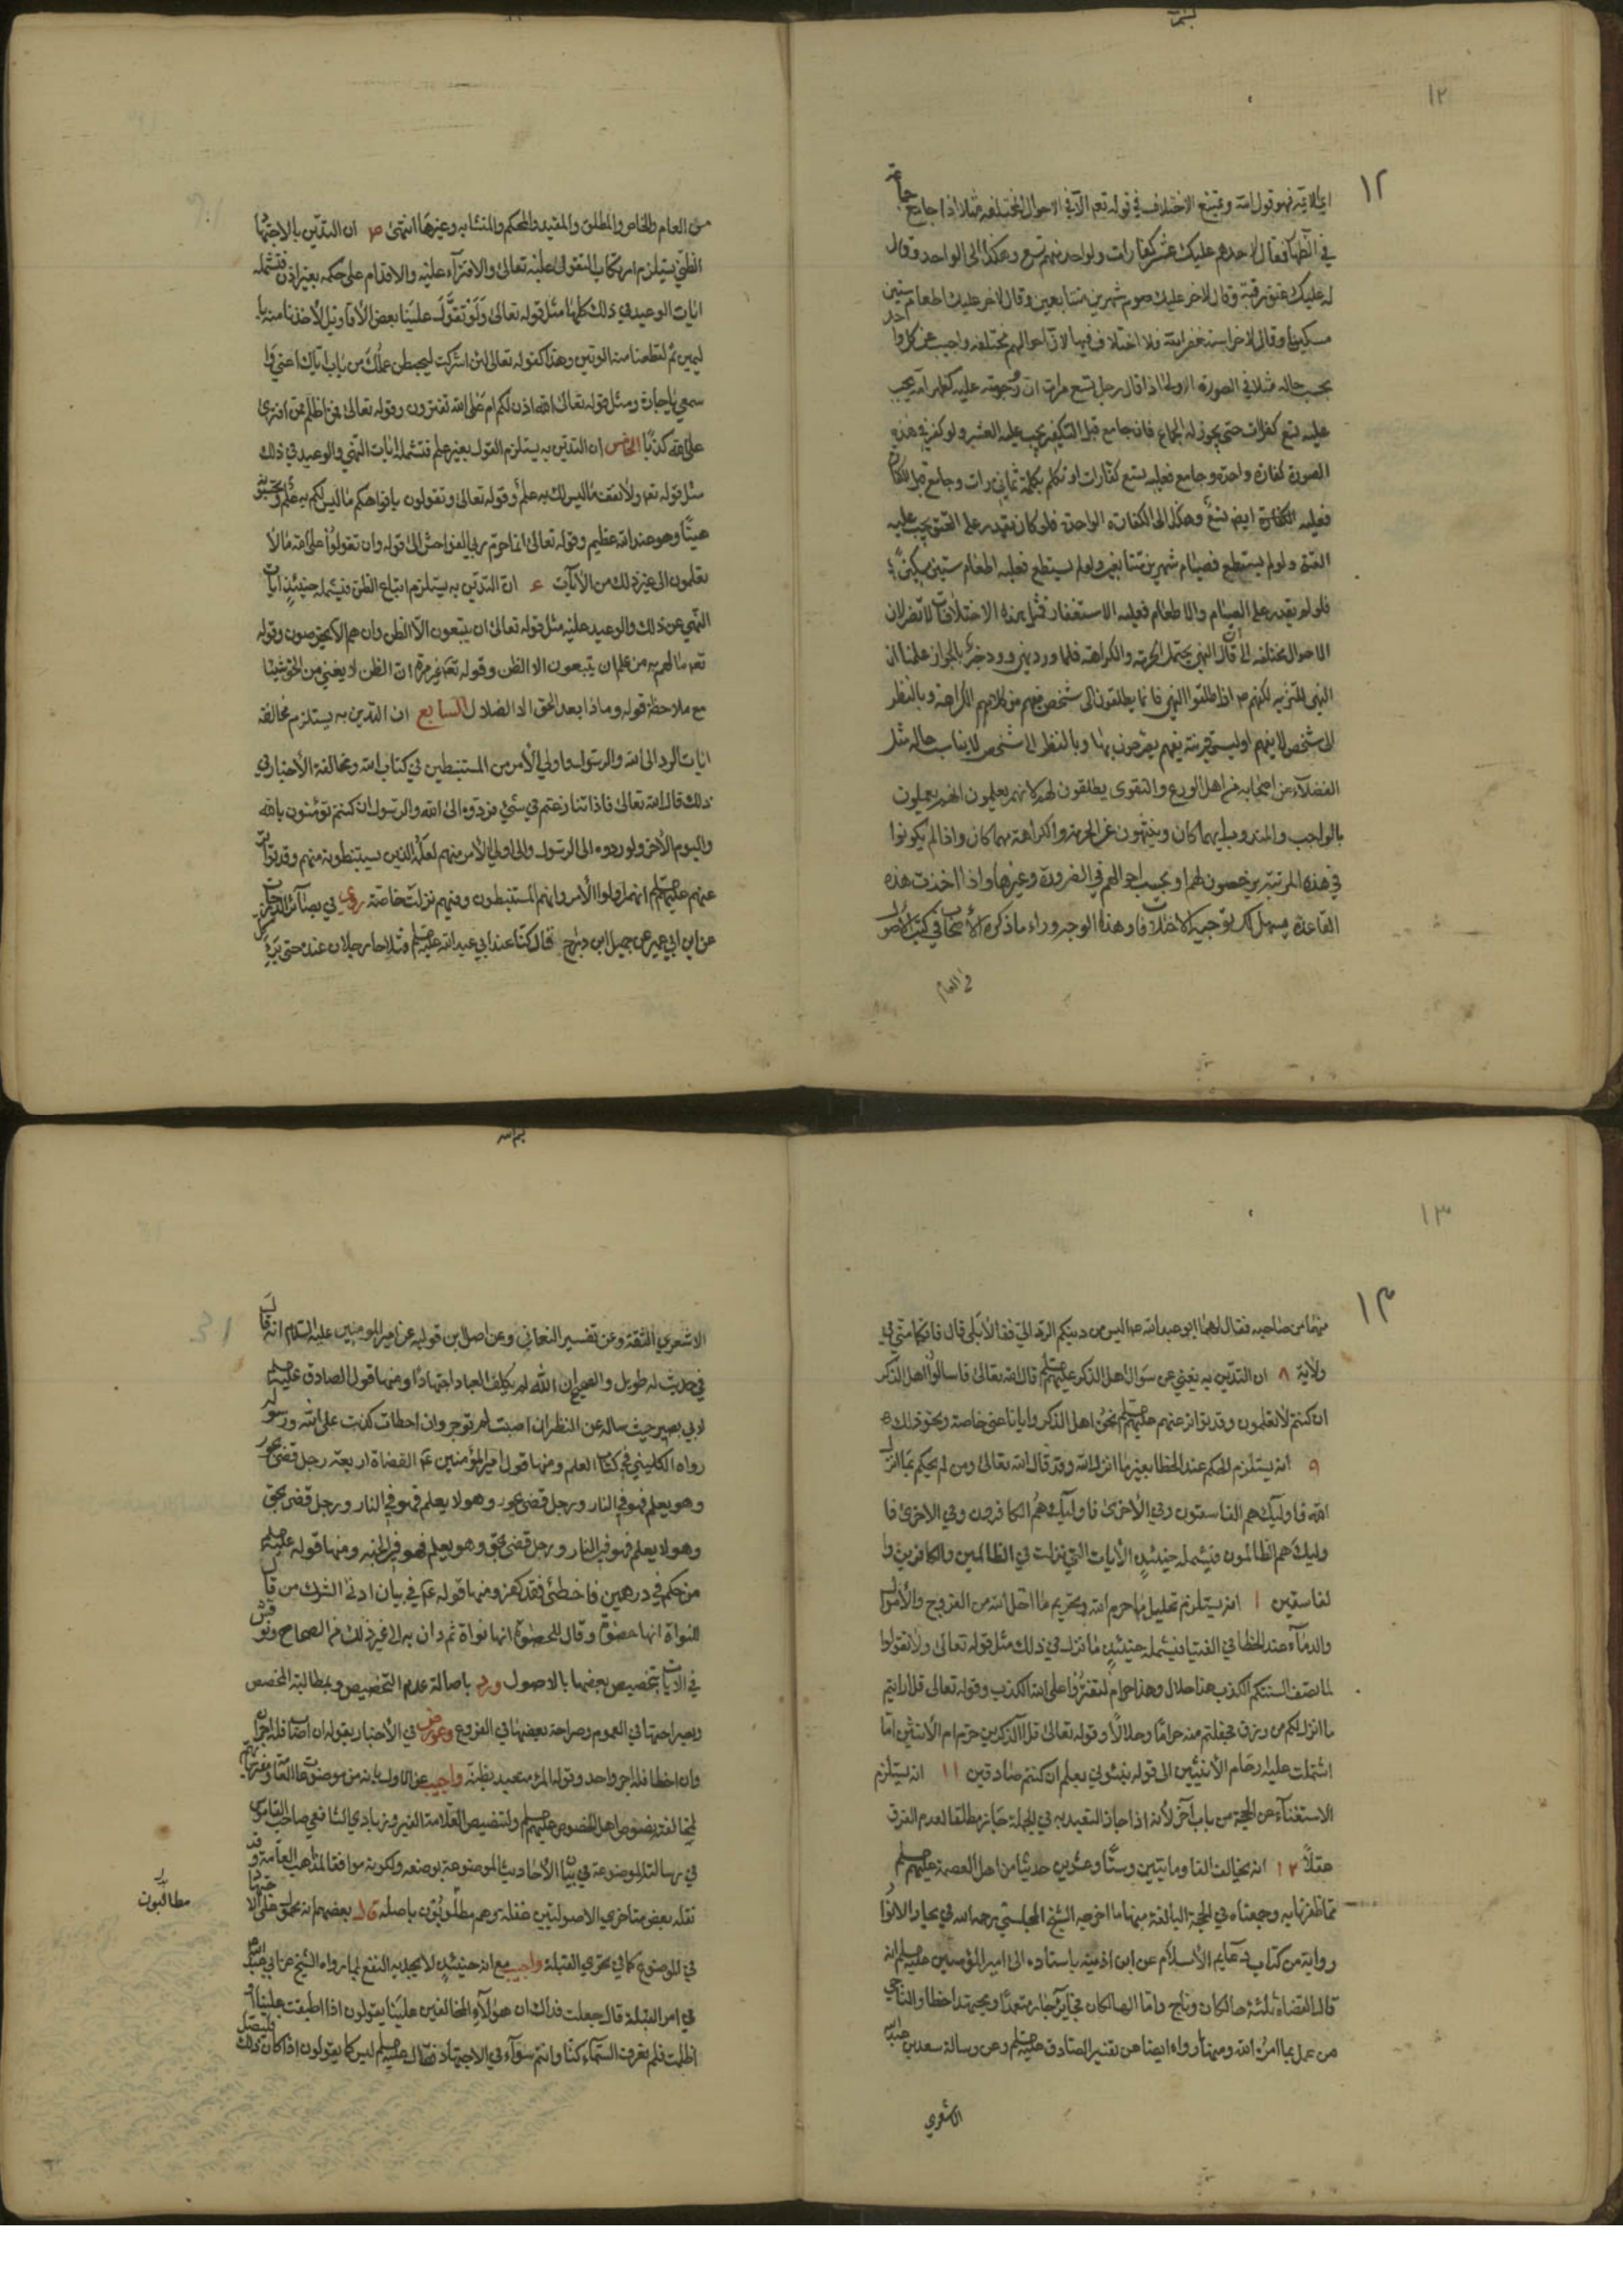 ١٢
في الظهار فقال لاحدهم عليك عشر كفارات ولواحد منهم تسع وهكذا الى الواحد وقال
له عليك عتق رقبة وقال لاخر عليك صوم شهرين متتابعين وقال لاخر عليك اطعام ستين
مسكينا وقال لاخر استغفر الله فلا اختلاف فيها لان احوالهم مختلفه واجيب عن كل واحد
بحسب حاله مثلا في الصورة الاولى اذا قال رجل تسع مرات ان زوجته عليه كظهر امه يجب
عليه تسع كفارات حتى يجوز له الجماع فان جامع قبل التكفير يجب عليه العشر ولو كفر في هذه
الصورة كفارة واحدة وجامع فعليه تسع كفارات او تكلم بكلمة ثماني مرات وجامع قبل الكفارة
فعليه الكفارة ايضا تسع وهكذا الى الكفارة الواحدة فلو كان يقدر على العتق يجب عليه
العتق ولو لم يستطع فصيام شهرين متتابعين ولو لم يستطع فعليه اطعام ستين مسكينا
فلو لم يقدر على الصيام والاطعام فعليه الاستغفار فمثل هذه الاختلافات لا تضر لان
الاحوال مختلفه
النهي للتنزيه لكنهم اذا اطلقوا النهي فانما يطلقون الى شخص يفهم من كلامهم الكراهة وبالنظر
الى شخص لا يفهم او ليست قرينة يفهم يصرحون بها وبالنظر الى شخص لا يناسب حاله مثل
الفضلاء من اصحابه من اهل الورع والتقوى يطلقون لهم لانهم يعلمون انهم يعملون
بالواجب والمندوب ايهما كان وينتهون عن الحرمة والكراهة مهما كان واذا لم يكونوا
في هذه المرتبة يرخصون لهم او بحسب احوالهم في الضرورة وغيرها واذا اخذت هذه
القاعدة يسهل لك توجيه الاخلافات وهذا الوجه وراء ما ذكره الاصحاب في كتب الاصول
في العام
من العام والخاص والمطلق والمقيد والمحكم والمتشابه وغيرها انتهى ان التديّن بالاجتهاد
الظني يستلزم ارتكاب التقول عليه تعالى والافترآء عليه والاقدام على حكمه بغير اذن فتشمله
ايات الوعيد في ذلك كلها مثل قوله تعالى ولو تقوّل علينا بعض الأقاويل لأخذنا منه با
ليمين ثم لقطعنا منه الوتين وهذا كقوله تعالى لئن اشركت ليحبطن عملك من باب اياك اعني وا
سمعي يا جارة ومثل قوله تعالى ءالله اذن لكم ام على الله تفترون وقوله تعالى فمن اظلم ممن افترى
على الله كذبًا الخامس ان التدين به يستلزم القول بغير علم فتشمله ايات النهي والوعيد في ذلك
مثل قوله تعه ولا تقف ما ليس لك به علم وقوله تعالى وتقولون بافواهكم ما ليس لكم به علم وتحسبونه
هينًا وهو عند الله عظيم وقوله تعالى انما حرم ربي الفواحش الى قوله وان تقولوا على الله ما لا
تعلمون الى غير ذلك من الآيات ان التدين به يستلزم اتباع الظن فيشمله حينئذ ايات
النهي عن ذلك والوعيد عليه مثل قوله تعالى ان يتبعون الّا الظن وان هم الا يخرصون وقوله
تعه ما لهم به من علم ان يتبعون الا الظن وقوله تعه غير مرة ان الظن لا يغني من الحق شيئا
مع ملاحظة قوله وماذا بعد الحق الا الضلال السابع ان التديّن به يستلزم مخالفة
ايات الرد الى الله والرسول واولي الأمر من المستنبطين في كتاب الله ومخالفة الأخبار في
ذلك قال الله تعالى فاذا تنازعتم في شيئ فردّوه الى الله والرسول ان كنتم تؤمنون بالله
واليوم الآخر ولو ردوه الى الرسول والى اولي الأمر منهم لعلمه الذين يستنبطونه منهم وقد تواتر
عنهم عليهم انهم اولوا الأمر وانهم المستنبطون وفيهم نزلت خاصة روى في بصائر الدرجات
عن ابن ابي عمير عن جميل ابن دراج قال كنا عند ابي عبد الله عليه
١٣
منهما من صاحبه فقال لهما ابو عبد الله عه اليس من دينكم الرد اليّ فقالا بلى قال
ولاية ٨ ان التدّين به يغني عن سؤال اهل الذكر عليهم قال الله تعالى فاسالوا اهل الذكر
ان كنتم لا تعلمون وقد تواتر عنهم عليهم نحن اهل الذكر وايانا عنى خاصة ونحو ذلك
٩ انه يستلزم الحكم عند الخطا بغير ما انزل الله وقد قال الله تعالى ومن لم يحكم بما انزل
الله فاولئك هم الفاسقون وفي الأخرى فاولئك هم الكافرون وفي الاخرى فا
ولئك هم الظالمون فيشمله حينئذ الأيات التي نزلت في الظالمين والكافرين وا
لفاسقين ١ انه يستلزم تحليل ما حرم الله وتحريم ما احل الله من الفروج والأموال
والدمآء عند الخطا في الفتيا فيشمله حينئذ ما نزل في ذلك مثل قوله تعالى ولا تقولوا
لما تصف السنتكم الكذب هذا حلال وهذا حرام لتفتروا على الله الكذب وقوله تعالى قل ارايتم
ما انزل لكم من رزق فجعلتم منه حرامًا وحلالًا وقوله تعالى قل آلذكرين حرم ام الأنثيين اما
اشتملت عليه ارحام الأنثيين الى قوله نبئوني بعلم ان كنتم صادقين ١١ انه يستلزم
الاستغناء عن الحجة من باب آخر لأنه اذا جاز التعبد به في الجملة جاز مطلقا لعدم الفرق
عقلًا ١٢ انه يخالف الفا ومايتين وستًّا وعشرين حديثا من اهل العصمة عليهم
مما ظفرنا به وجمعناه في الحجة البالغة منها ما اخرجه الشيخ المجلسي رحمه الله في بحار الانوار
رواية من كتاب دعايم الأسلام عن ابن اذينه باسناده الى امير المؤمنين عليه انه
قال القضاة ثلثة هالكان وناج واما الهالكان فجاير جار متعمدًا ومجتهد اخطا والناجي
من عمل بما امره الله ومنها رواه ايضا عن تفسير الصادق عليه وعن رسالة سعد بن عبد الله
الاشعري
الاشعري الثقة وعن تفسير النعماني وعن اصل ابن قولويه عن امير المومنين عليه السلام انه قال
في حديث له طويل والصحيح ان الله لم يكلف العباد اجتهادًا ومنها قول الصادق عليه
لابي بصير حيث ساله عن النظر ان اصبت لم توجر وان اخطات كذبت على الله ورسوله
رواه الكليني في كتاب العلم ومنها قول امير المؤمنين ع القضاة اربعة رجل قضى بجور
وهو يعلم فهو في النار ورجل قضى بجور وهو لا يعلم فهو في النار ورجل قضى بحق
وهو لا يعلم فهو في النار ورجل قضى بحق وهو يعلم فهو في الجنه ومنها قوله عليه
من حكم في درهمين فاخطئ فقد كفر ومنها قوله ع في بيان ادنى الشرك من قال
للنواة انها حصوة وقال للحصوة انها نواة ثم دان به الى غير ذلك من الصحاح ونوقش
في الايات بتخصيص بعضها بالاصول ورد باصالة عدم التخصيص وبمطالبة المخصص
وبصراحتها في العموم وصراحة بعضها في الفروع وعورض في الأخبار بقوله ان اصاب فله اجران
وان اخطا فله اجر واحد وقوله المرء متعبد بظنه واجيب عن الاول بانه من موضوعات العامة
لمخالفته نصوص اهل الخصوص عليهم ولتنصيص العلامة الفيروزبادي الشافعي صاحب القاموس
في رسالته الموضوعة في بيان الأحاديث الموضوعة بوضعه ولكونه موافقا لمذاهب العامة وقد
نقله بعض متاخري الاصوليين غفلة وهم مطلوبون باصله قال بعضهم انه
مطالبون
في الموضوع كما في تحري القبلة واجيب مع انه حينئذ لا يجديه النفع لما رواه الشيخ عن ابي عبد الله
في امر القبلة قال جعلت فداك ان هؤلآء المخالفين علينا يقولون اذا اطبقت علينا او
اظلمت فلم نعرف السمآء كنا وانتم سوآء في الاجتهاد فقال عليه ليس كما يقولون اذا كان ذلك